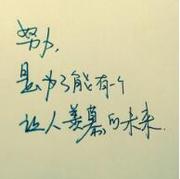 努力，
是为了能有一个
让人羡慕的未来.